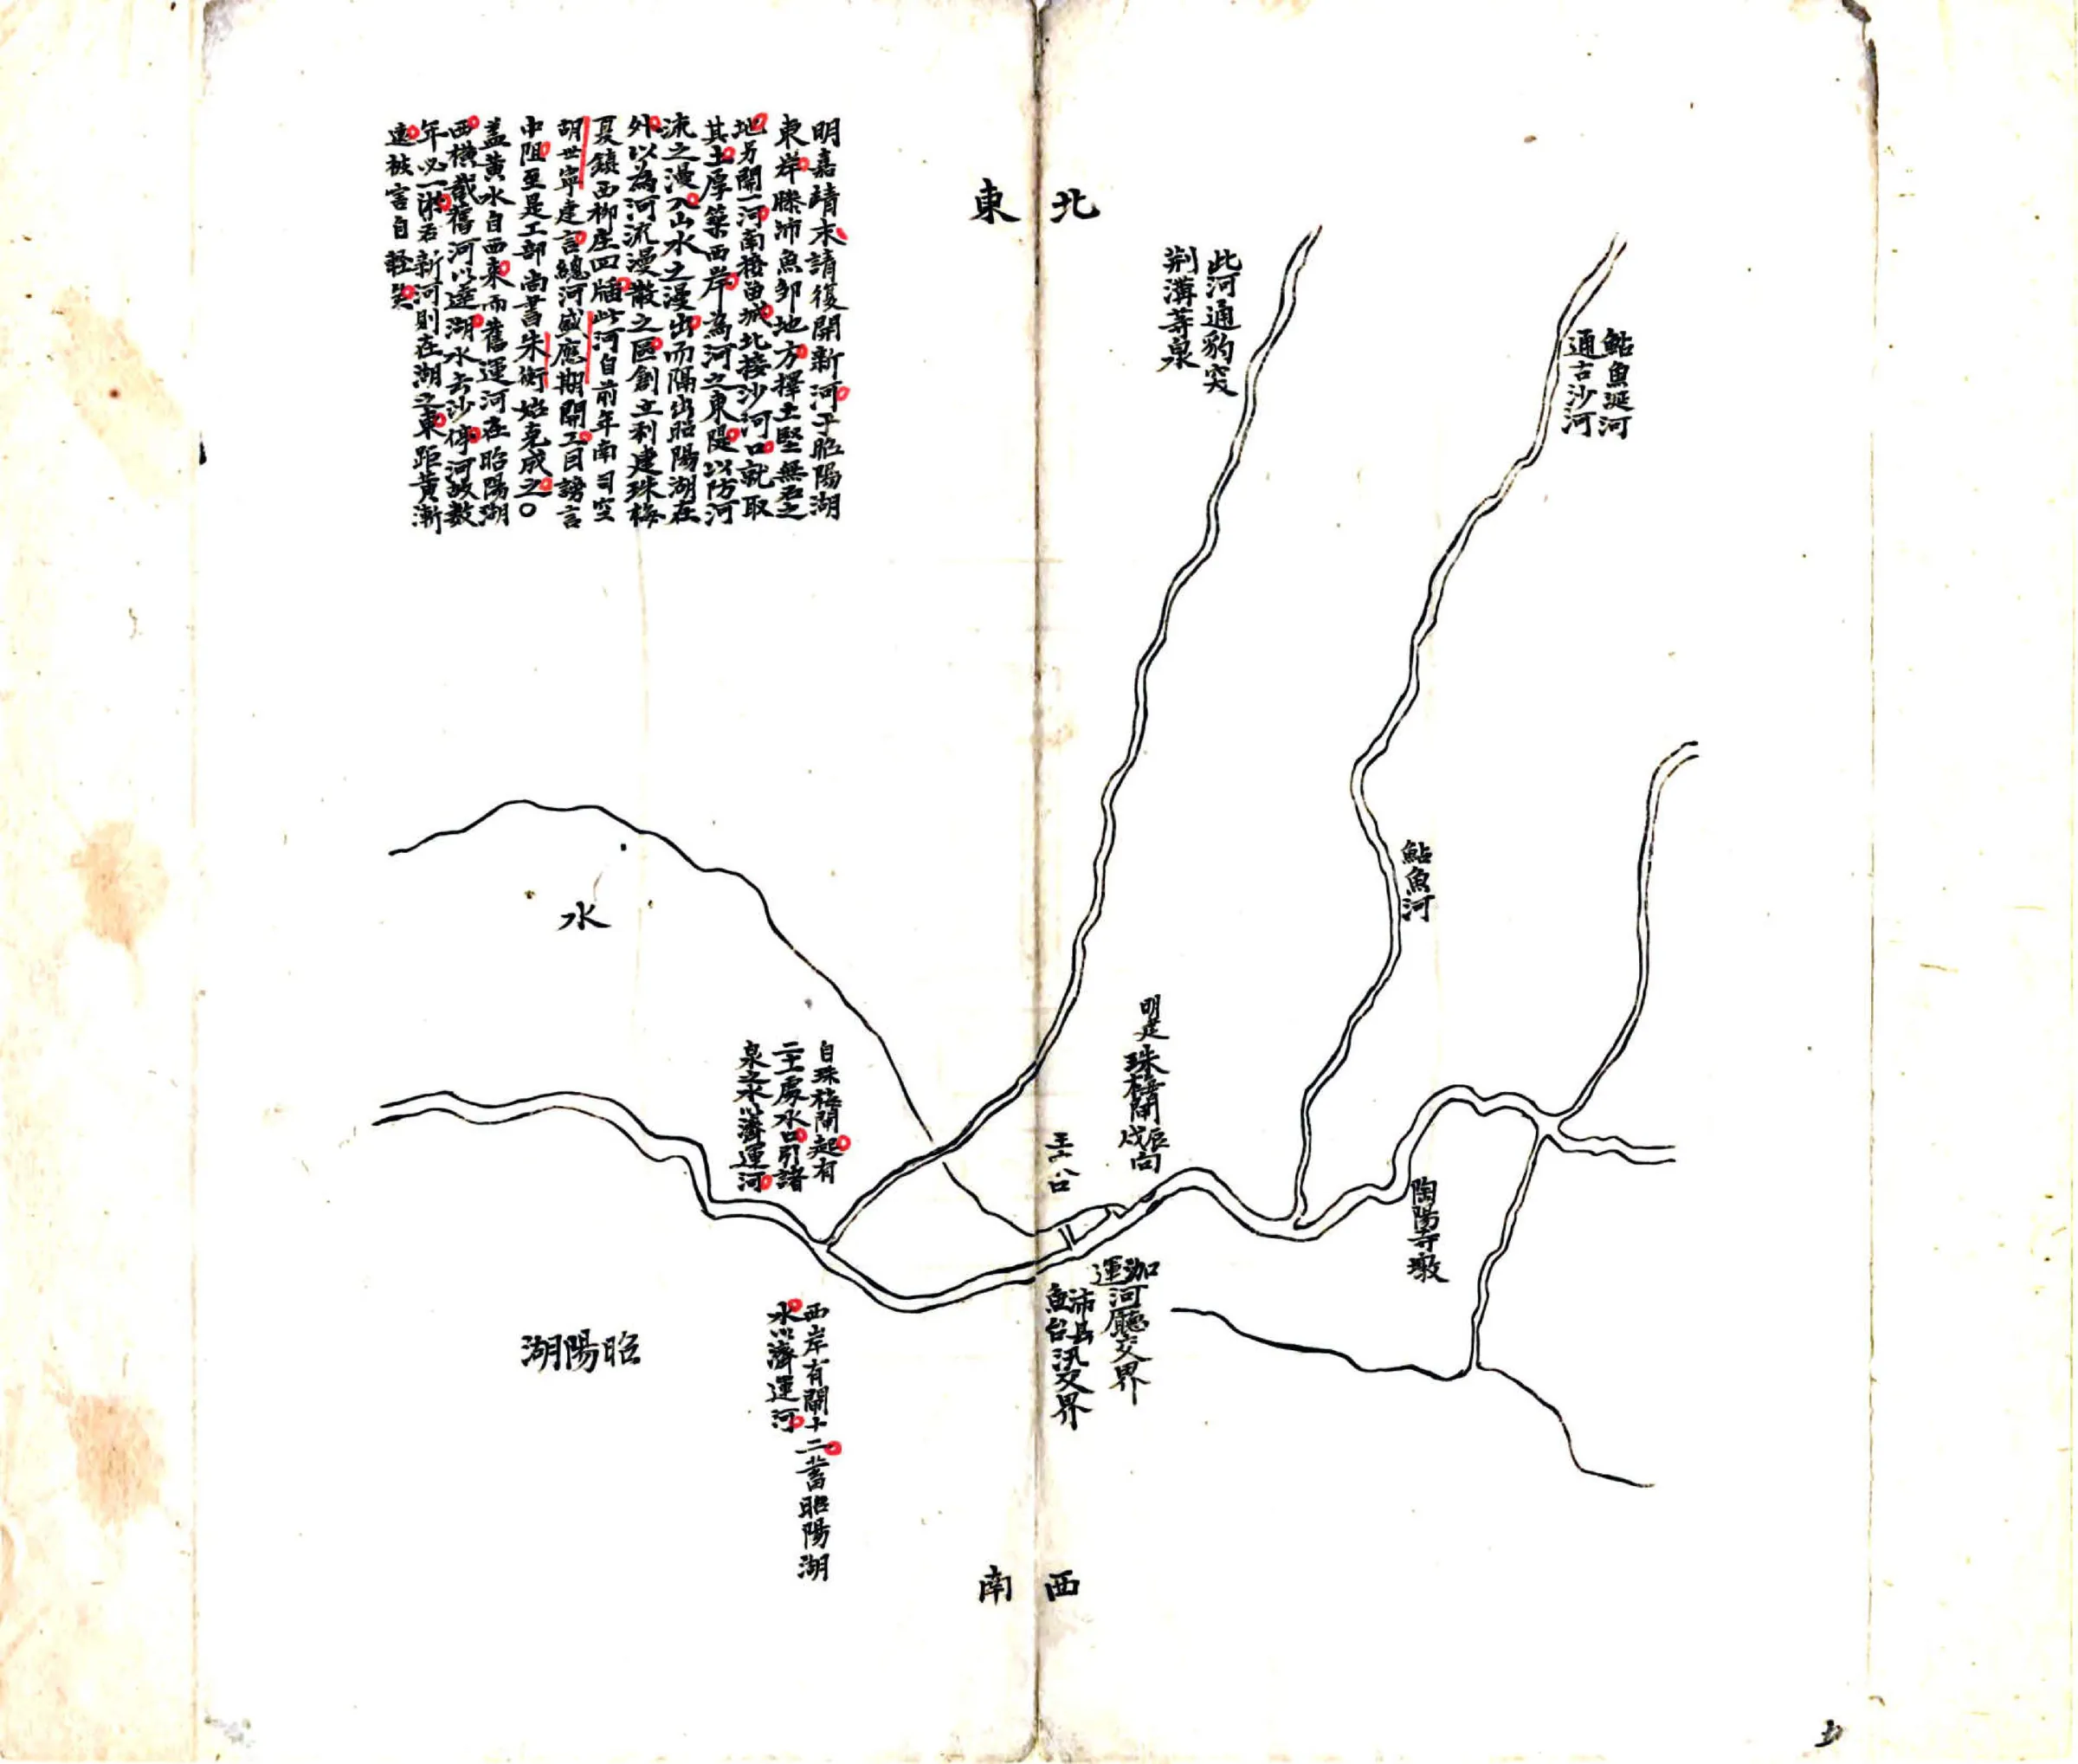 北東
明嘉靖末請復開新河于昭陽湖
東岸滕沛魚邹地方擇土堅無石之
地另開一河南接留城北接沙河口就取
其土厚築西岸為河之東隄以防河
流之漫入山水之漫出而隔出昭陽湖在
外以為河流漫散之區創立利建珠梅
夏鎮西柳庄四牐此河自前年南司空
胡世寧建言總河盛應期開工目謗言
中阻至是工部尚書朱衡始克成之〇
盖黄水自西来而舊運河在昭陽湖
西橫截舊河以達湖水去沙停河故数
年必一淤若新河則在湖之東距黄漸
遠被害自軽矣
鮎魚涎河
通古沙河
此河通豹突
荆溝等泉
鮎魚河
水
明建珠梅閘戌辰向
自珠梅閘起有
二十二處水口引諸
泉之水以濟運河
陶陽寺墩
泇河廳交界
運
沛县汛交界
魚台
西岸有閘十二蓄昭陽湖
水以濟運河
昭陽湖
西南